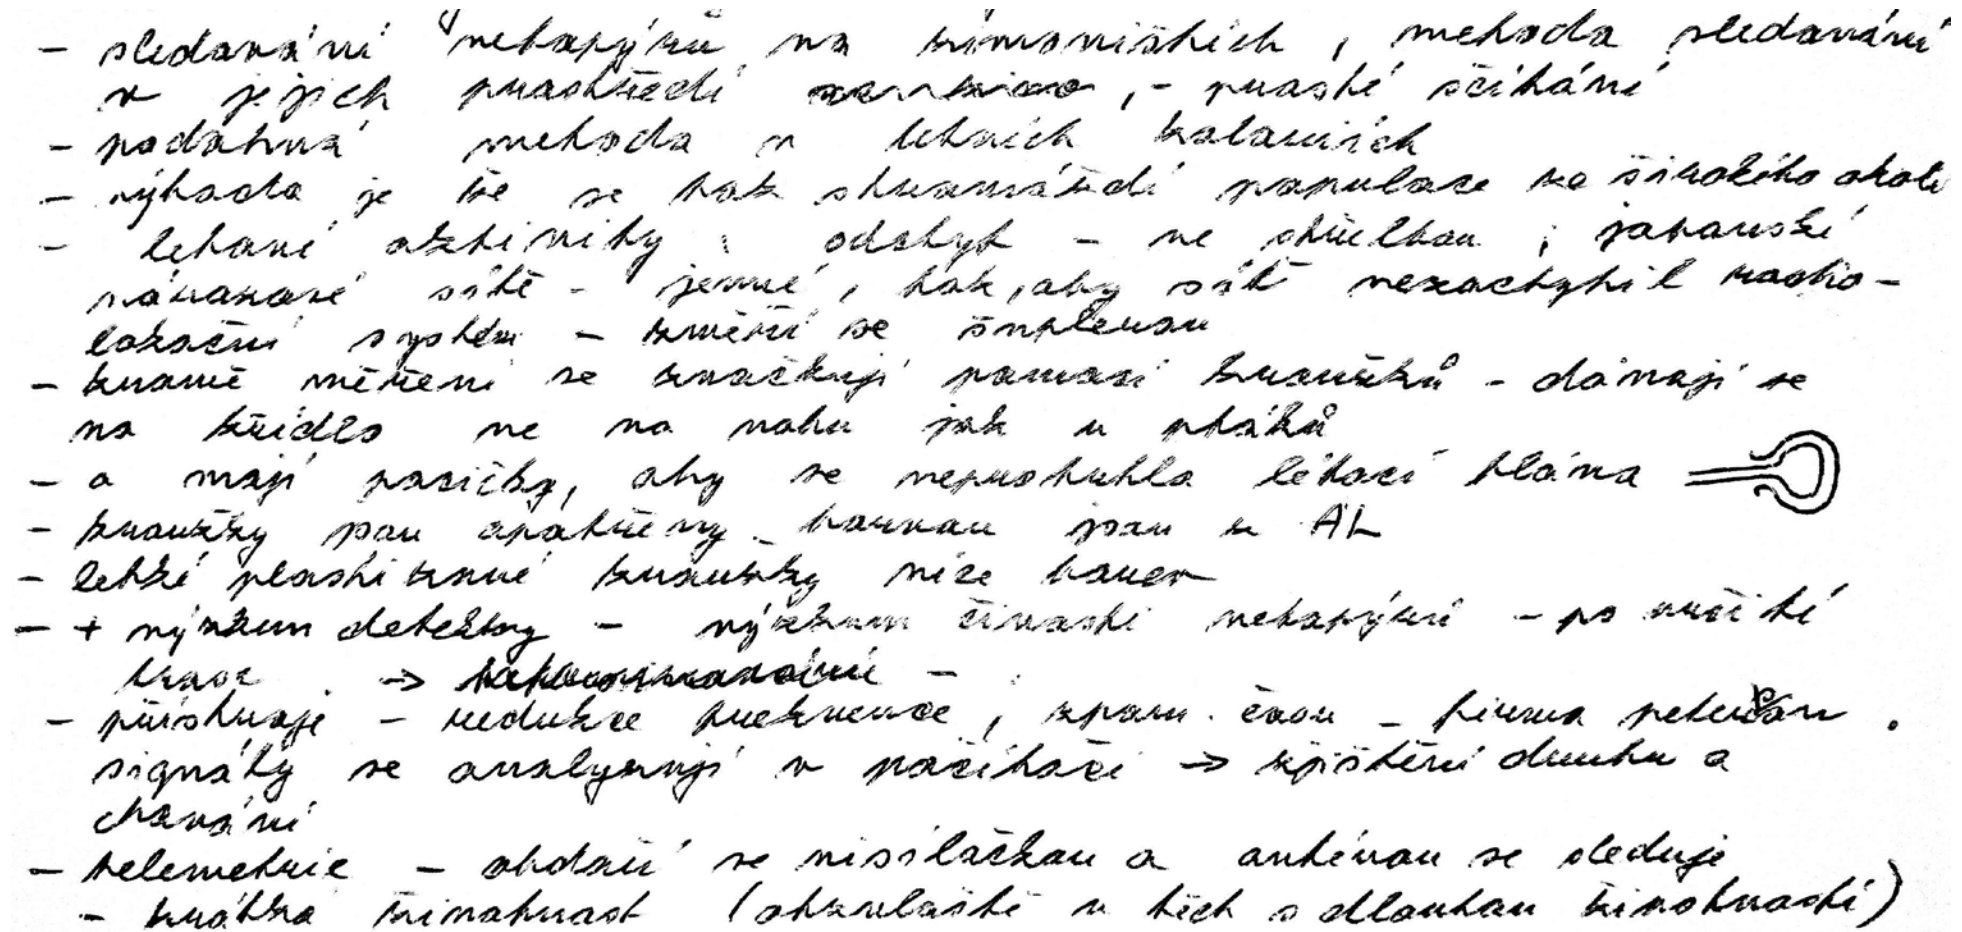 - sledování netopýrů na zimovištích, metoda sledování
v jejich prostředí, - prosté sčítání
- podobná metoda v letních koloniích
- výhoda je že se tak shromáždí populace ze širokého okolí
- letové aktivity; odchyt - ne střelbou; japonské
nárazové sítě - jemné, tak, aby síť nezachytil radio-
lokační systém - změří se šuplerou
- kromě měření se značkují pomocí kroužků - dávají se
na křídlo ne na nohu jak u ptáků
- a mají pacičky, aby se neprotrhla létací blána
- kroužky jsou opatřeny - barvou jsou z AL
- lehké plastikové kroužky více barev
- + výzkum detektory - výzkum činnosti netopýrů - po určité
trase. →
- přístroje - redukce frekvence, zpom. času - firma
signály se analyzují v počítači → zjištění druhu a
chování
- telemetrie - obdaří se vysílačkou a anténou se sleduje
- krátká životnost (obzvláště u těch s dlouhou životností)